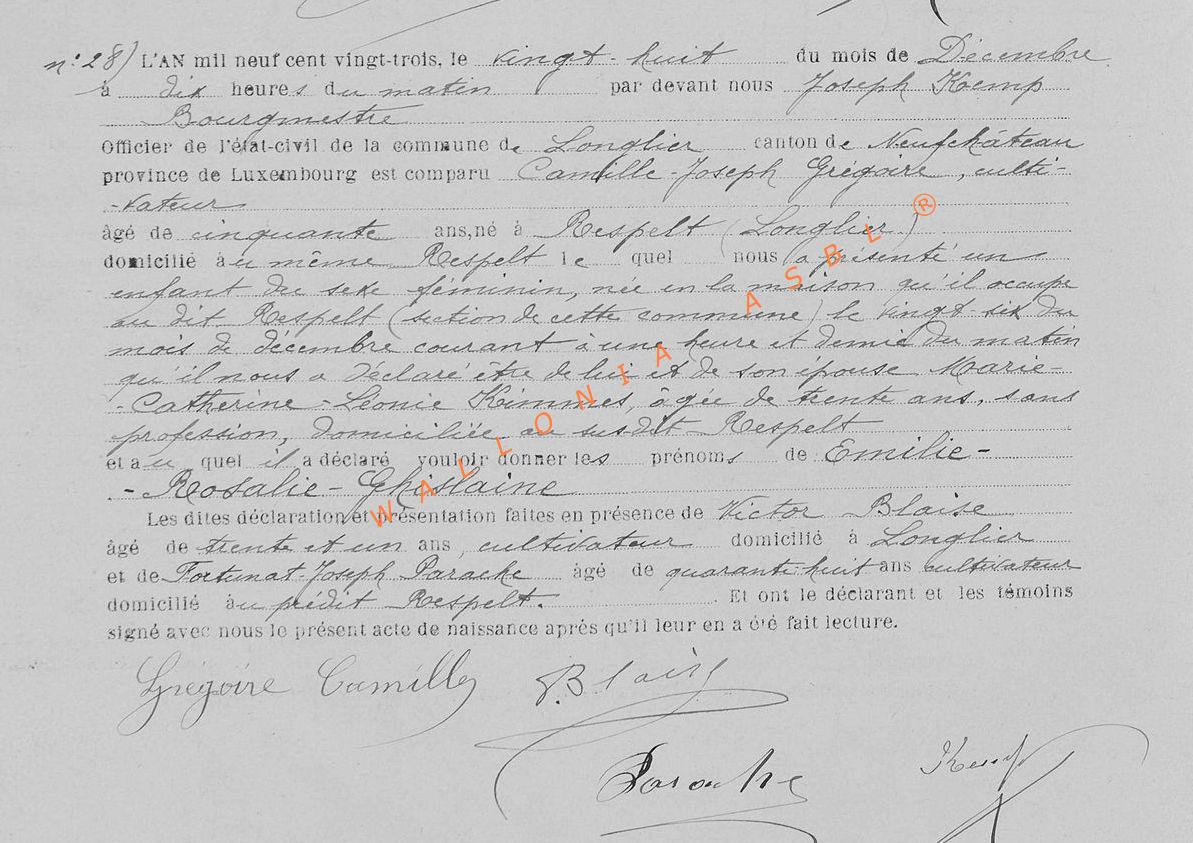 n° 28) L'AN mil neuf cent vingt-trois, le vingt-huit du mois de Décembre
à dix heures du matin par devant nous Joseph Kemp
Bourgmestre
Officier de l'état-civil de la commune de Longlier canton de Neufchâteau
province de Luxembourg est comparu Camille-Joseph Grégoire, culti-
-vateur
âgé de cinquante ans, né à Respelt (Longlier)
domicilié au même Respelt le quel nous a présenté un
enfant du sexe féminin, née en la maison qu'il occupe
au dit Respelt (section de cette commune) le vingt-six du
mois de décembre courant à une heure et demie du matin
qu'il nous a déclaré être de lui et de son épouse Marie-
-Catherine-Léonie Kimmes, âgée de trente ans, sans
profession, domiciliée au susdit Respelt
et au quel il a déclaré vouloir donner les prénoms de Emilie-
-Rosalie-Ghislaine
Les dites déclaration et présentation faites en présence de Victor Blaise
âgé de trente et un ans, cultivateur domicilié à Longlier
et de Fortunat-Joseph Parache âgé de quarante-huit ans cultivateur
domicilié au prédit Respelt. Et ont le déclarant et les témoins
signé avec nous le présent acte de naissance après qu'il leur en a été fait lecture.
Grégoire Camille VBlaise
Parache Kemp
WALLONIA ASBL ®